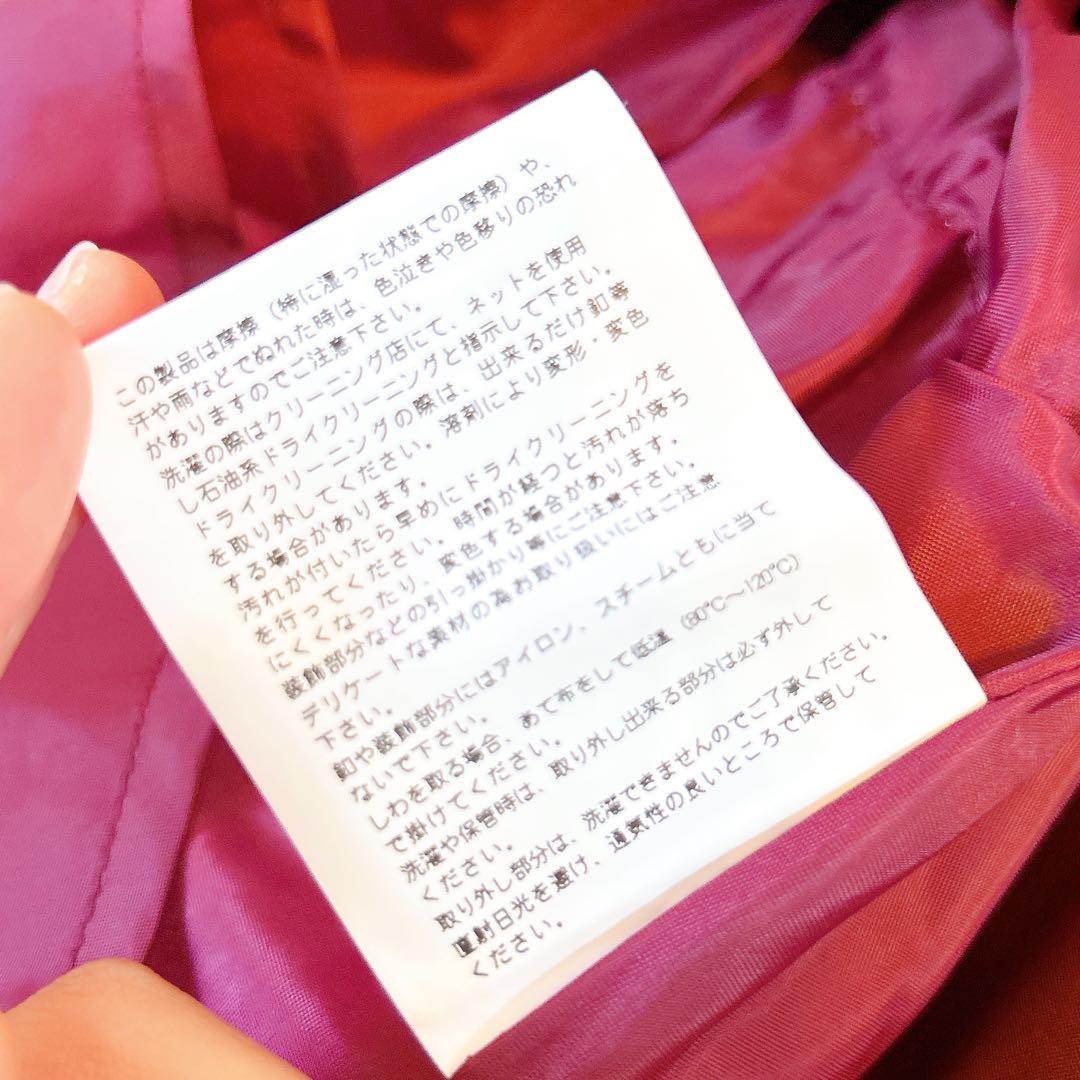 この製品は摩擦（特に湿った状態での摩擦）や、
汗や雨などでぬれた時は、色泣きや色移りの恐れ
がありますのでご注意下さい。
洗濯の際はクリーニング店にて、ネットを使用
し石油系ドライクリーニングと指示して下さい。
ドライクリーニングの際は、出来るだけ釦等
を取り外してください。溶剤により変形・変色
する場合があります。
汚れが付いたら早めにドライクリーニングを
を行ってください。時間が経つと汚れが落ち
にくくなったり、変色する場合があります。
装飾部分などの引っ掛かり等にご注意下さい。
デリケートな素材の為お取り扱いにはご注意
下さい。
釦や装飾部分にはアイロン、スチームともに当て
ないで下さい。
しわを取る場合、あて布をして低温（80℃～120℃）
で掛けてください。
洗濯や保管時は、取り外し出来る部分は必ず外して
ください。
取り外し部分は、洗濯できませんのでご了承ください。
直射日光を避け、通気性の良いところで保管して
ください。